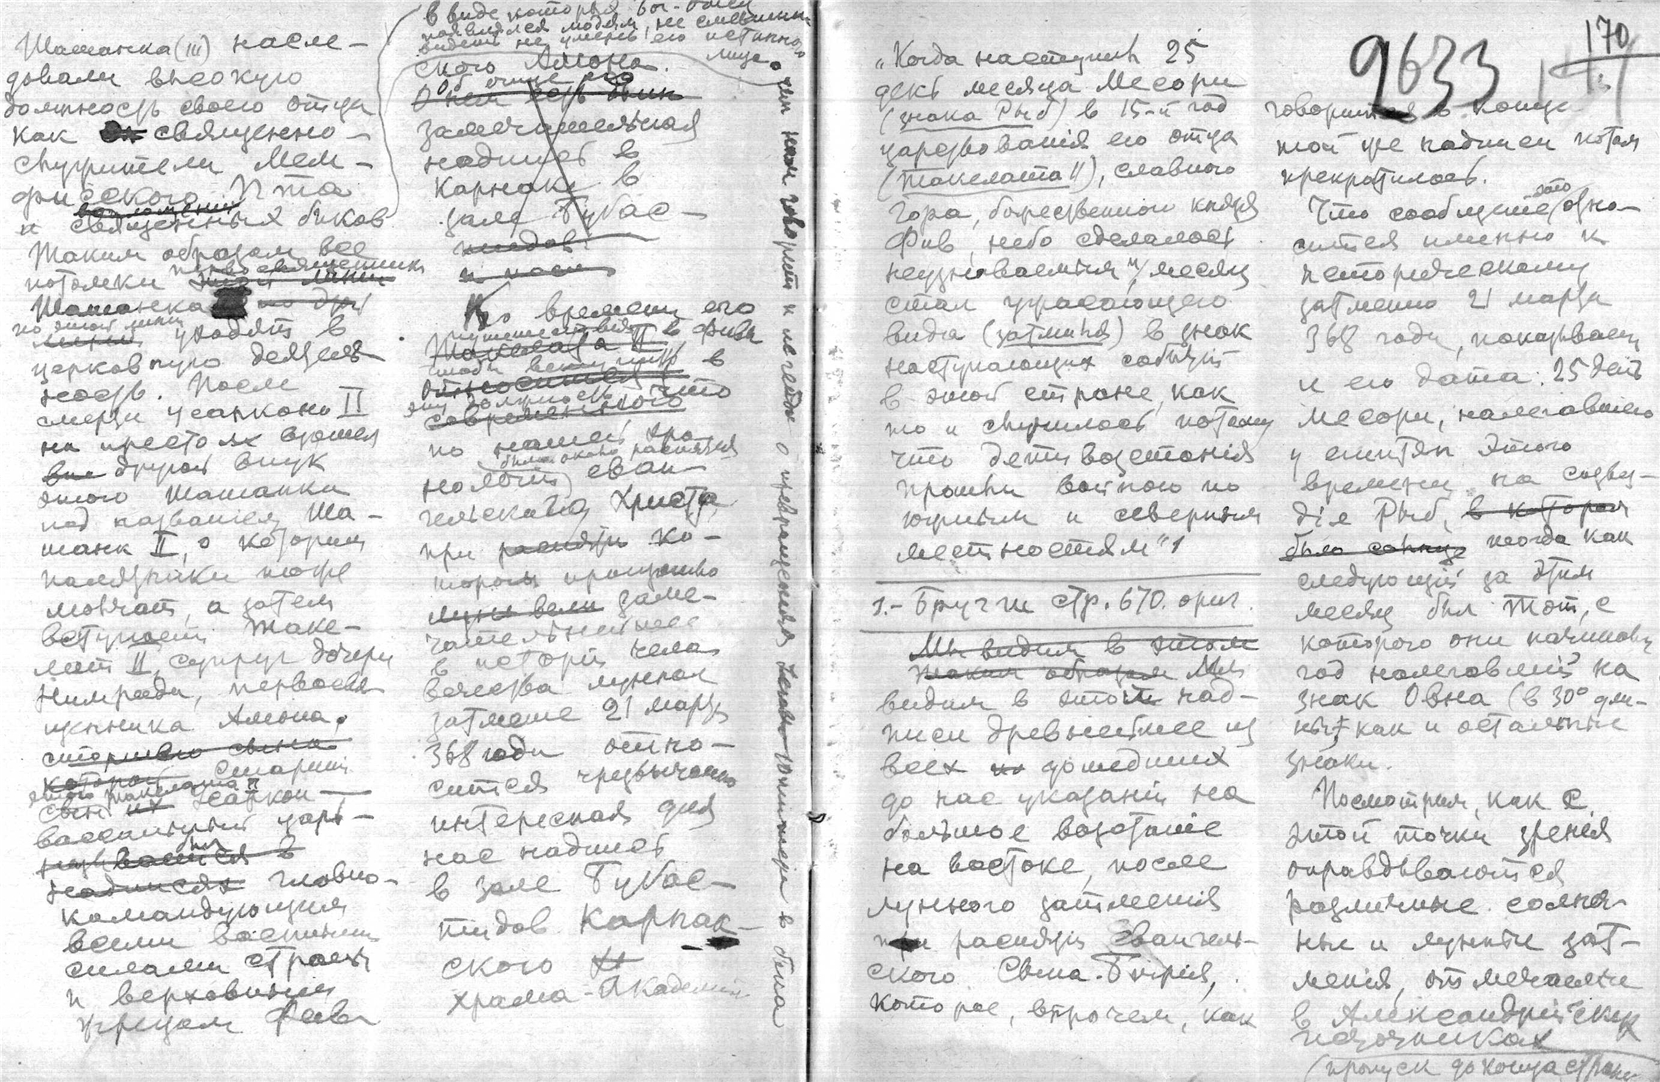 Шашанка (III) насле-
довали высокую
должность своего отца
как священно-
служители Мем-
фисского Пта
и священных быков
Таким образом все
потомки первосвященника
Шашанка
по этой линии уходят в
церковную деятель-
ность. После
смерти Усаркона II
на престол взошел
другой внук
этого Шашанка
под названием Ша-
шанк II, о котором
памятники тоже
молчат, а затем
вступает Таке-
лот II, супруг дочери
Нимрода, первосвя-
щенника Амона.
старший
этого Такелота II
сын Усаркон
вассальный царь-
был
главно-
командующим
всеми военными
силами страны
и верховным
жрецом Фив
в виде которых бог-отец
являлся людям, не смевшим
видеть его истинного
лица.
ского Амона.
замечательная
надпись в
Карнаке в
зале Бубас-
Ко времени его
путешествия в Фивы
чтобы вступить в
эту должность что
по нашей хро-
нологии было около распятия
еван-
гельского Христа,
при ко-
тором произошло
заме-
чательнейшее
в истории чела
вечества лунное
затмение 21 марта
368 года отно-
сится чрезвычайно
интересная для
нас надпись
в зале Бубас-
тидов Карнак-
ского
храма-Академии
чем нам говорит и легенда о превращении Юпитера в быка
170
9633
„Когда наступил 25
день месяца Месори
(знака Рыб) в 15-й год
царствования его отца
(Такелота II), славного
Гора, божественного князя
Фив, небо сделалось
неузнаваемым и месяц
стал ужасающего
вида (затмился) в знак
наступающих событий
в этой стране, как
то и случилось потому
что дети восстания
прошли войною по
южным и северным
местностям“ 1
1.- Бругш стр. 670. ориг.
Мы видим в этом
таким образом Мы
видим в этой над-
писи древнейшее из
всех дошедших
до нас указаний на
большое восстание
на востоке, после
лунного затмения
при распятии Евангель-
ского Сына-Божия,
которое, впрочем, как
говорится в конце
той же надписи потом
прекратилось.
Что сообщение это отно-
сится именно к
историческому
затмению 21 марта
368 года, показывает
и его дата: 25 день
Месори, налегавшего
у египтян этого
времени на созвез-
дие Рыб, в котором
было солнце тогда как
следующий за этим
месяц был Тот, с
которого они начинали
год налегавший на
знак Овна (в 30° дли-
ны) как и остальные
знаки.
Посмотрим, как с
этой точки зрения
оправдываются
различные солнеч-
ные и лунные зат-
мения, отмечаемые
в Александрийских
источниках
(пропуск до конца страни-